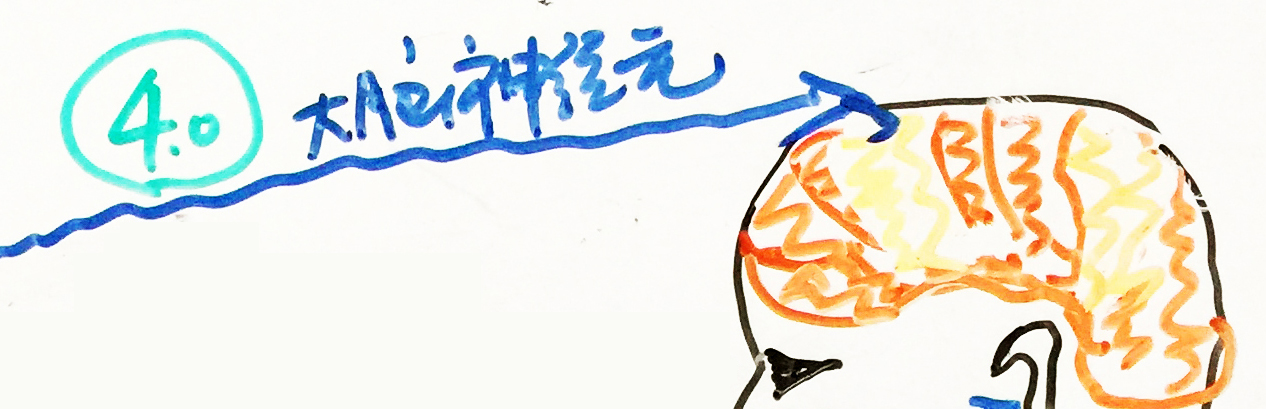 4.0
大脑神经元